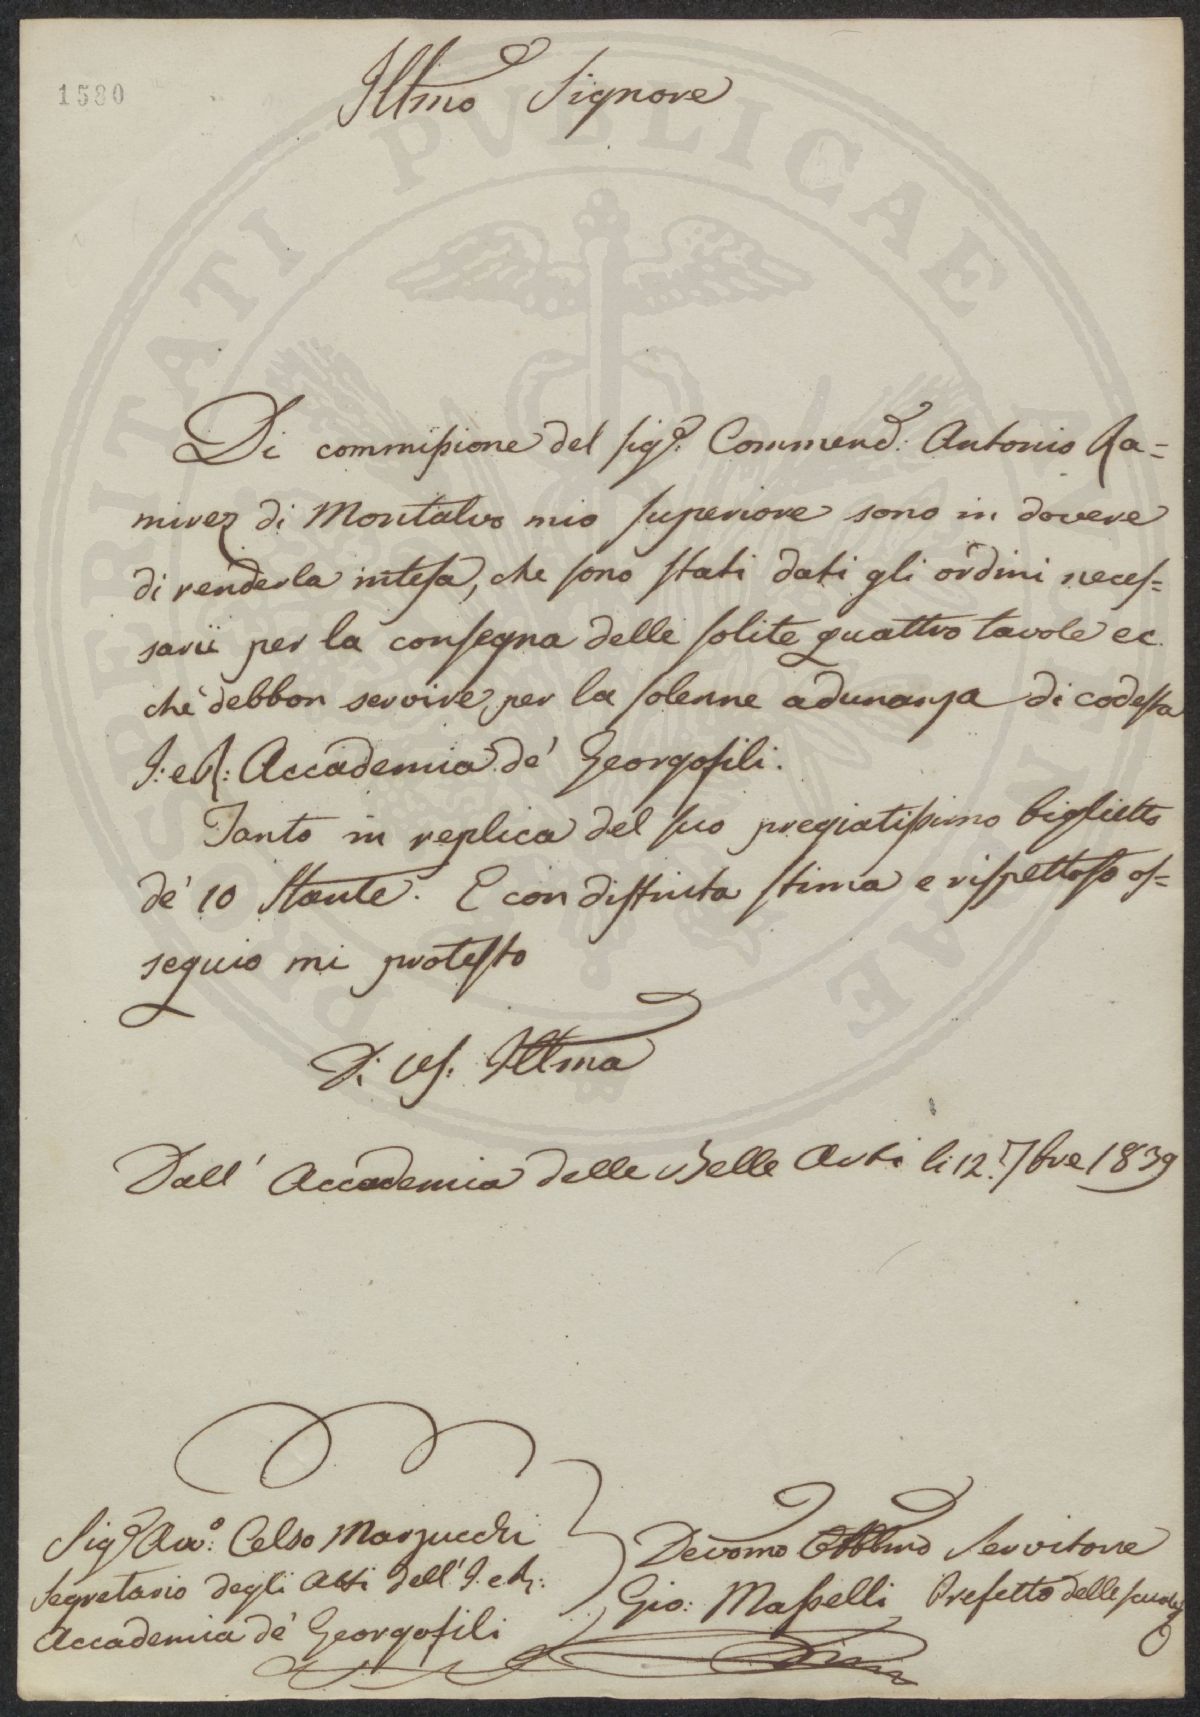 1580
Illmo Signore
Di commissione del sigr. Commend: Antonio Ra=
mirez di Montalvo mio superiore sono in dovere
di renderla intesa, che sono stati dati gli ordini neces=
sarii per la consegna delle solite quattro tavole ec
che debbon servire per la solenne adunanza di codesta
I: e R: Accademia de' Georgofili.
Tanto in replica del suo pregiatissimo biglietto
de' 10 Stante. E con distinta stima e rispettoso os=
sequio mi protesto
Di VS. Illma
Dall' Accademia delle Belle Arti li 12. 7bre 1839
Sigr Avv: Celso Marzucchi
Segretario degli Atti dell' I. e R:
Accademia de' Georgofili
Devomo Obblmo Servitore
Gio: Masselli Prefetto delle scuole
PROSPERITATI PVBLICAE AVGENDAE